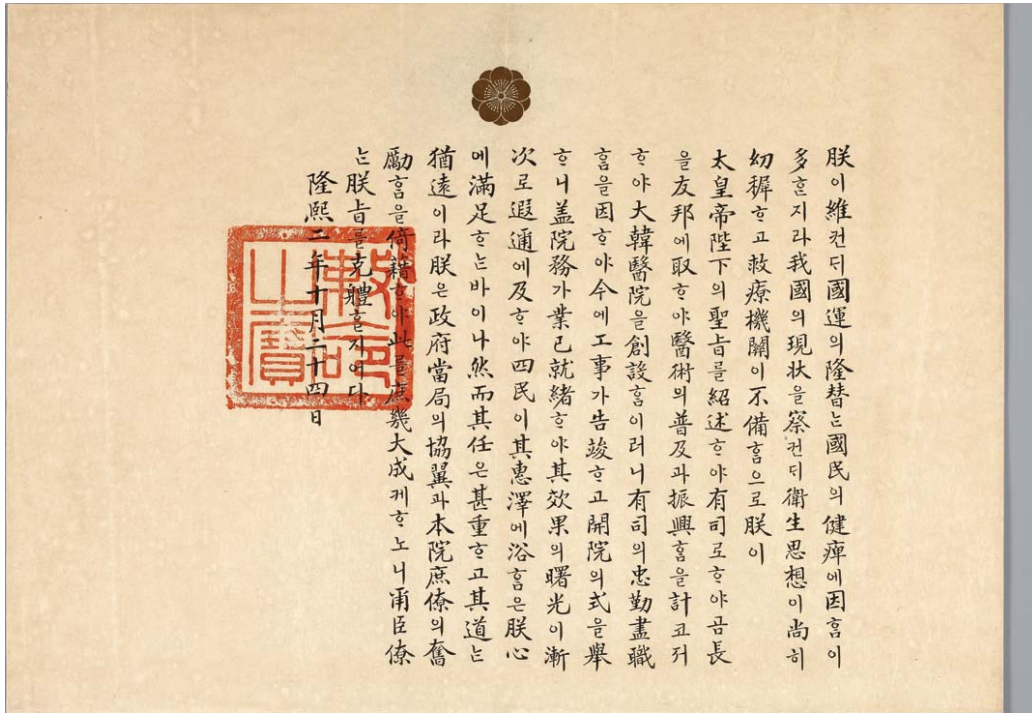 朕이維컨ᄃᆡ國運의隆替는國民의健痺에因ᄒᆞᆷ이
多ᄒᆞᆫ지라我國의現状을察컨ᄃᆡ衛生思想이尚히
幼穉ᄒᆞ고救療機關이不備ᄒᆞᆷ으로朕이
太皇帝陛下의聖旨를紹述ᄒᆞ야有司로ᄒᆞ야곰長
을友邦에取ᄒᆞ야醫術의普及과振興ᄒᆞᆷ을計코져
ᄒᆞ야大韓醫院을創設ᄒᆞᆷ이러니有司의忠勤盡職
ᄒᆞᆷ을因ᄒᆞ야今에工事가告竣ᄒᆞ고開院의式을舉
ᄒᆞ니盖院務가業已就緒ᄒᆞ야其效果의曙光이漸
次로遐邇에及ᄒᆞ야四民이其惠澤에浴ᄒᆞᆷ은朕心
에滿足ᄒᆞ는바이나然而其任은甚重ᄒᆞ고其道는
猶遠이라朕은政府當局의協翼과本院庶僚의奮
勵ᄒᆞᆷ을倚藉ᄒᆞ야此를庶幾大成케ᄒᆞ노니爾臣僚
는朕旨를克體ᄒᆞᆯ지어다
隆熙二年十月二十四日
勅命之寶